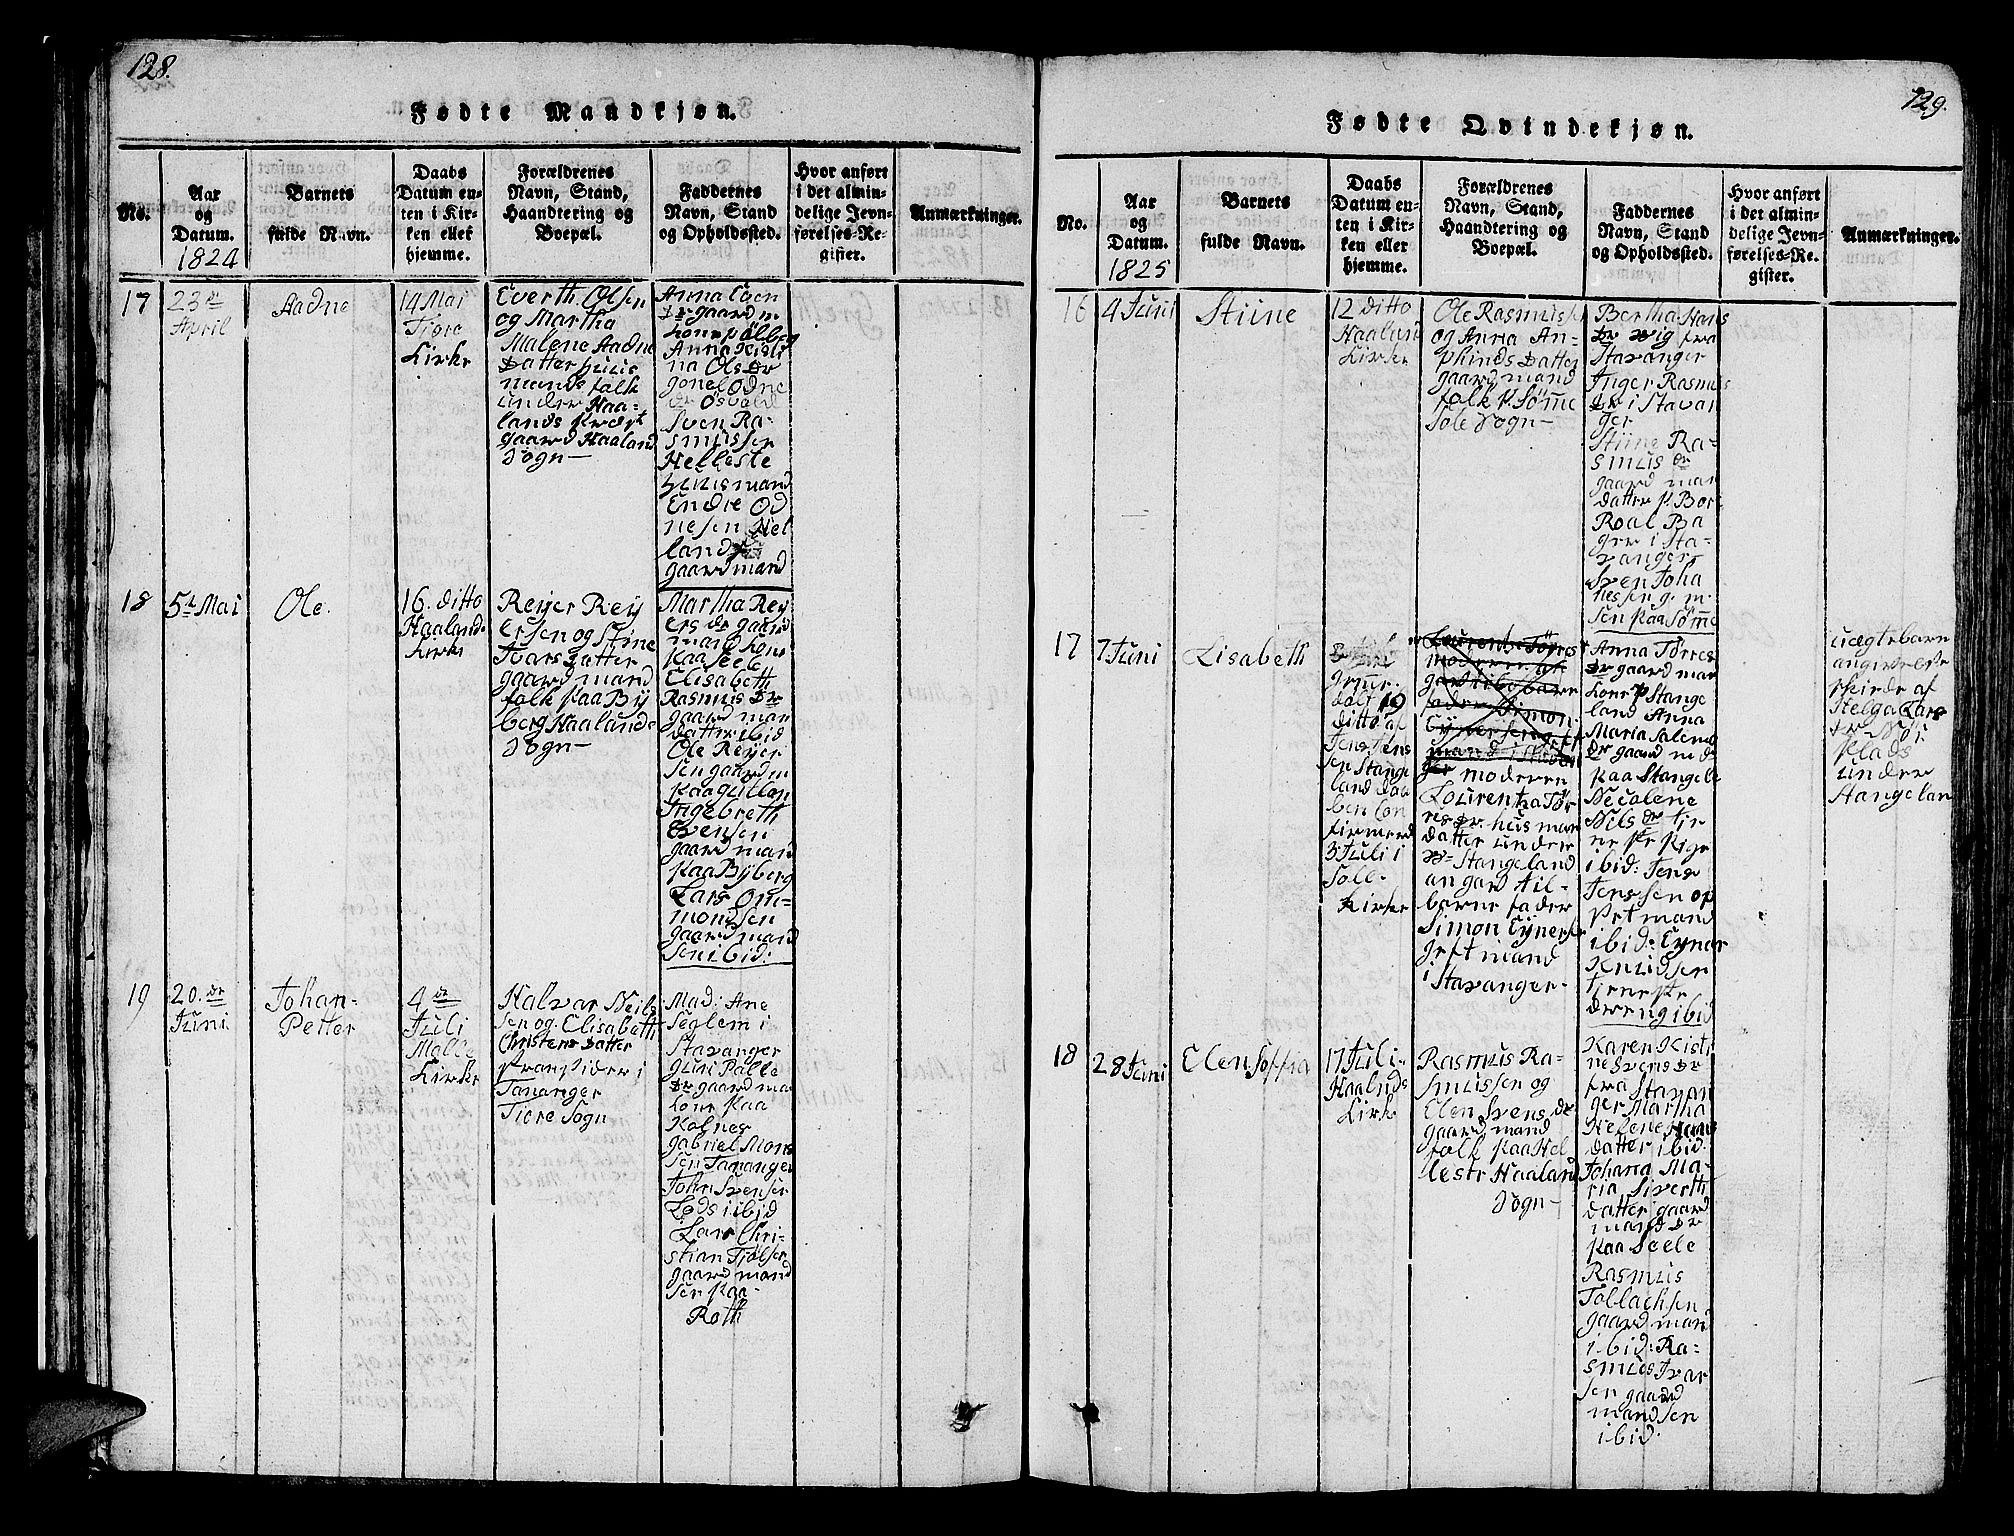 128.
Fødte Mandkjøn.
No.
Aar
og
Datum.
1824
Barnets
fulde Navn.
Daabs
Datum en-
ten i Kir-
ken eller
hjemme.
Forældrenes
Navn, Stand,
Haandtering og
Boepæl.
Faddernes
Navn, Stand
og Opholdssted.
Hvor anført
i det almin-
delige Jevn-
førelses-Re-
gister.
Anmærkninger.
17
23de
April
Aadne
14 Mai
Kirke
Everth Olsen
og Martha
Malene Aadne
Datter huus
mands folk
under Haa-
lands Præst
gaard Haaland
Sogn
Anna
Dr gaard m
Anna Kisti
na Ols Dr
Sven Ra-
smussen
Helleste
Huusmand
Endre Od
nesen Hel
land
gaardmand
18
5te Mai
Ole.
16. ditto
Haaland
Kirke
Reijer Reij
ersen og Stine
Ivars Datter
gaard mand
folk paa Bij
berg Haalands
Sogn
Martha Reij
ers dr gaard
mand kone
paa Seele
Elisabeth
Rasmus Dr
gaard man
datter ibid
Ole Reijer
sen gaard m
Ingebreth
Svensen
gaard man
paa Bijberg
Lars Om-
mondsen
gaard mand
sen ibid:
19
20. de
Juni
Johan-
Petter
4 de
Juli
Kirke
Halvar Neils
sen og. Elisabeth
Christens Datter
Strandsider i
Tananger
Tiore Sogn
Mad: Ane
Seglem i
Stavanger
Dr gaard ma
kone paa
Kolnes
Gabriel Mons
sen Tananger
John Svensen
Lods i ibid
Lars Chri-
stian
gaard mand
sen paa
Roth
129.
Fødte Qvindekjøn.
No.
Aar
og
Datum.
1825
Barnets
fulde Navn.
Daabs
Datum en-
ten i Kir-
ken eller
hjemme.
Forældrenes
Navn, Stand,
Haandtering og
Boepæl.
Faddernes
Navn, Stand
og Opholdssted.
Hvor anført
i det almin-
delige Jevn-
førelses-Re-
gister.
Anmærkninger.
16
4 Juni
Stiine
12 Ditto
Haaland
Kirke
Ole Rasmusse
og Anna An-
phinds Datter
gaard mand
folk p. Sømme
Sole Sogn
Bertha Hans
Dr vig fra
Stavanger
Inger Rasmus
Dr i Stavan
ger
Stiine Ra-
smus dr
gaard man
datter p. Bor-
Roal Ba
ger i Sta-
vanger
Sven Joha
nessen g. m.
sen paa Sømme
17
7 Juni
Lisabeth
19
ditto af
Jens Jens
sen Stange
land Daa
ben Con
firmerd
3 Juli i
Sole
Kirke
moderen
Lourentza Tør
res Dr. hus man
datter under
Stangeland
an gav til
barne fader
Simon Eijnerse
mand
i Stavanger
Anna Tørres
Dr gaard man
kone p Stange
land Anna
Maria Salemo
Dr gaard mand
paa Stangela
Necalene
Nils dr tje
ne ste pige
ibid: Jens
Jenssen op
ibid: Eynar
Knudsen
tjeneste
dreng ibid
uægtebarn
angivelse
skeede af
Helga Lars
dr
Plads
under
18
28 Juni
Elen Soffia
17 Juli
Haalands
Kirke
Rasmus Ra-
smussen og
Elen Svens dr
gaard mand
folk paa Hel
leste Haaland
Sogn
Karen Kisti
ne Svens Dr
fra Stavan
ger Martha
Helene Hans
datter ibid.
Johana Ma-
ria Siverth
datter gaard
mand Dr
paa Seele
Rasmus
Tollachsen
gaard man
ibid: Ra-
smus Ivar
sen gaard
mand sen
ibid.